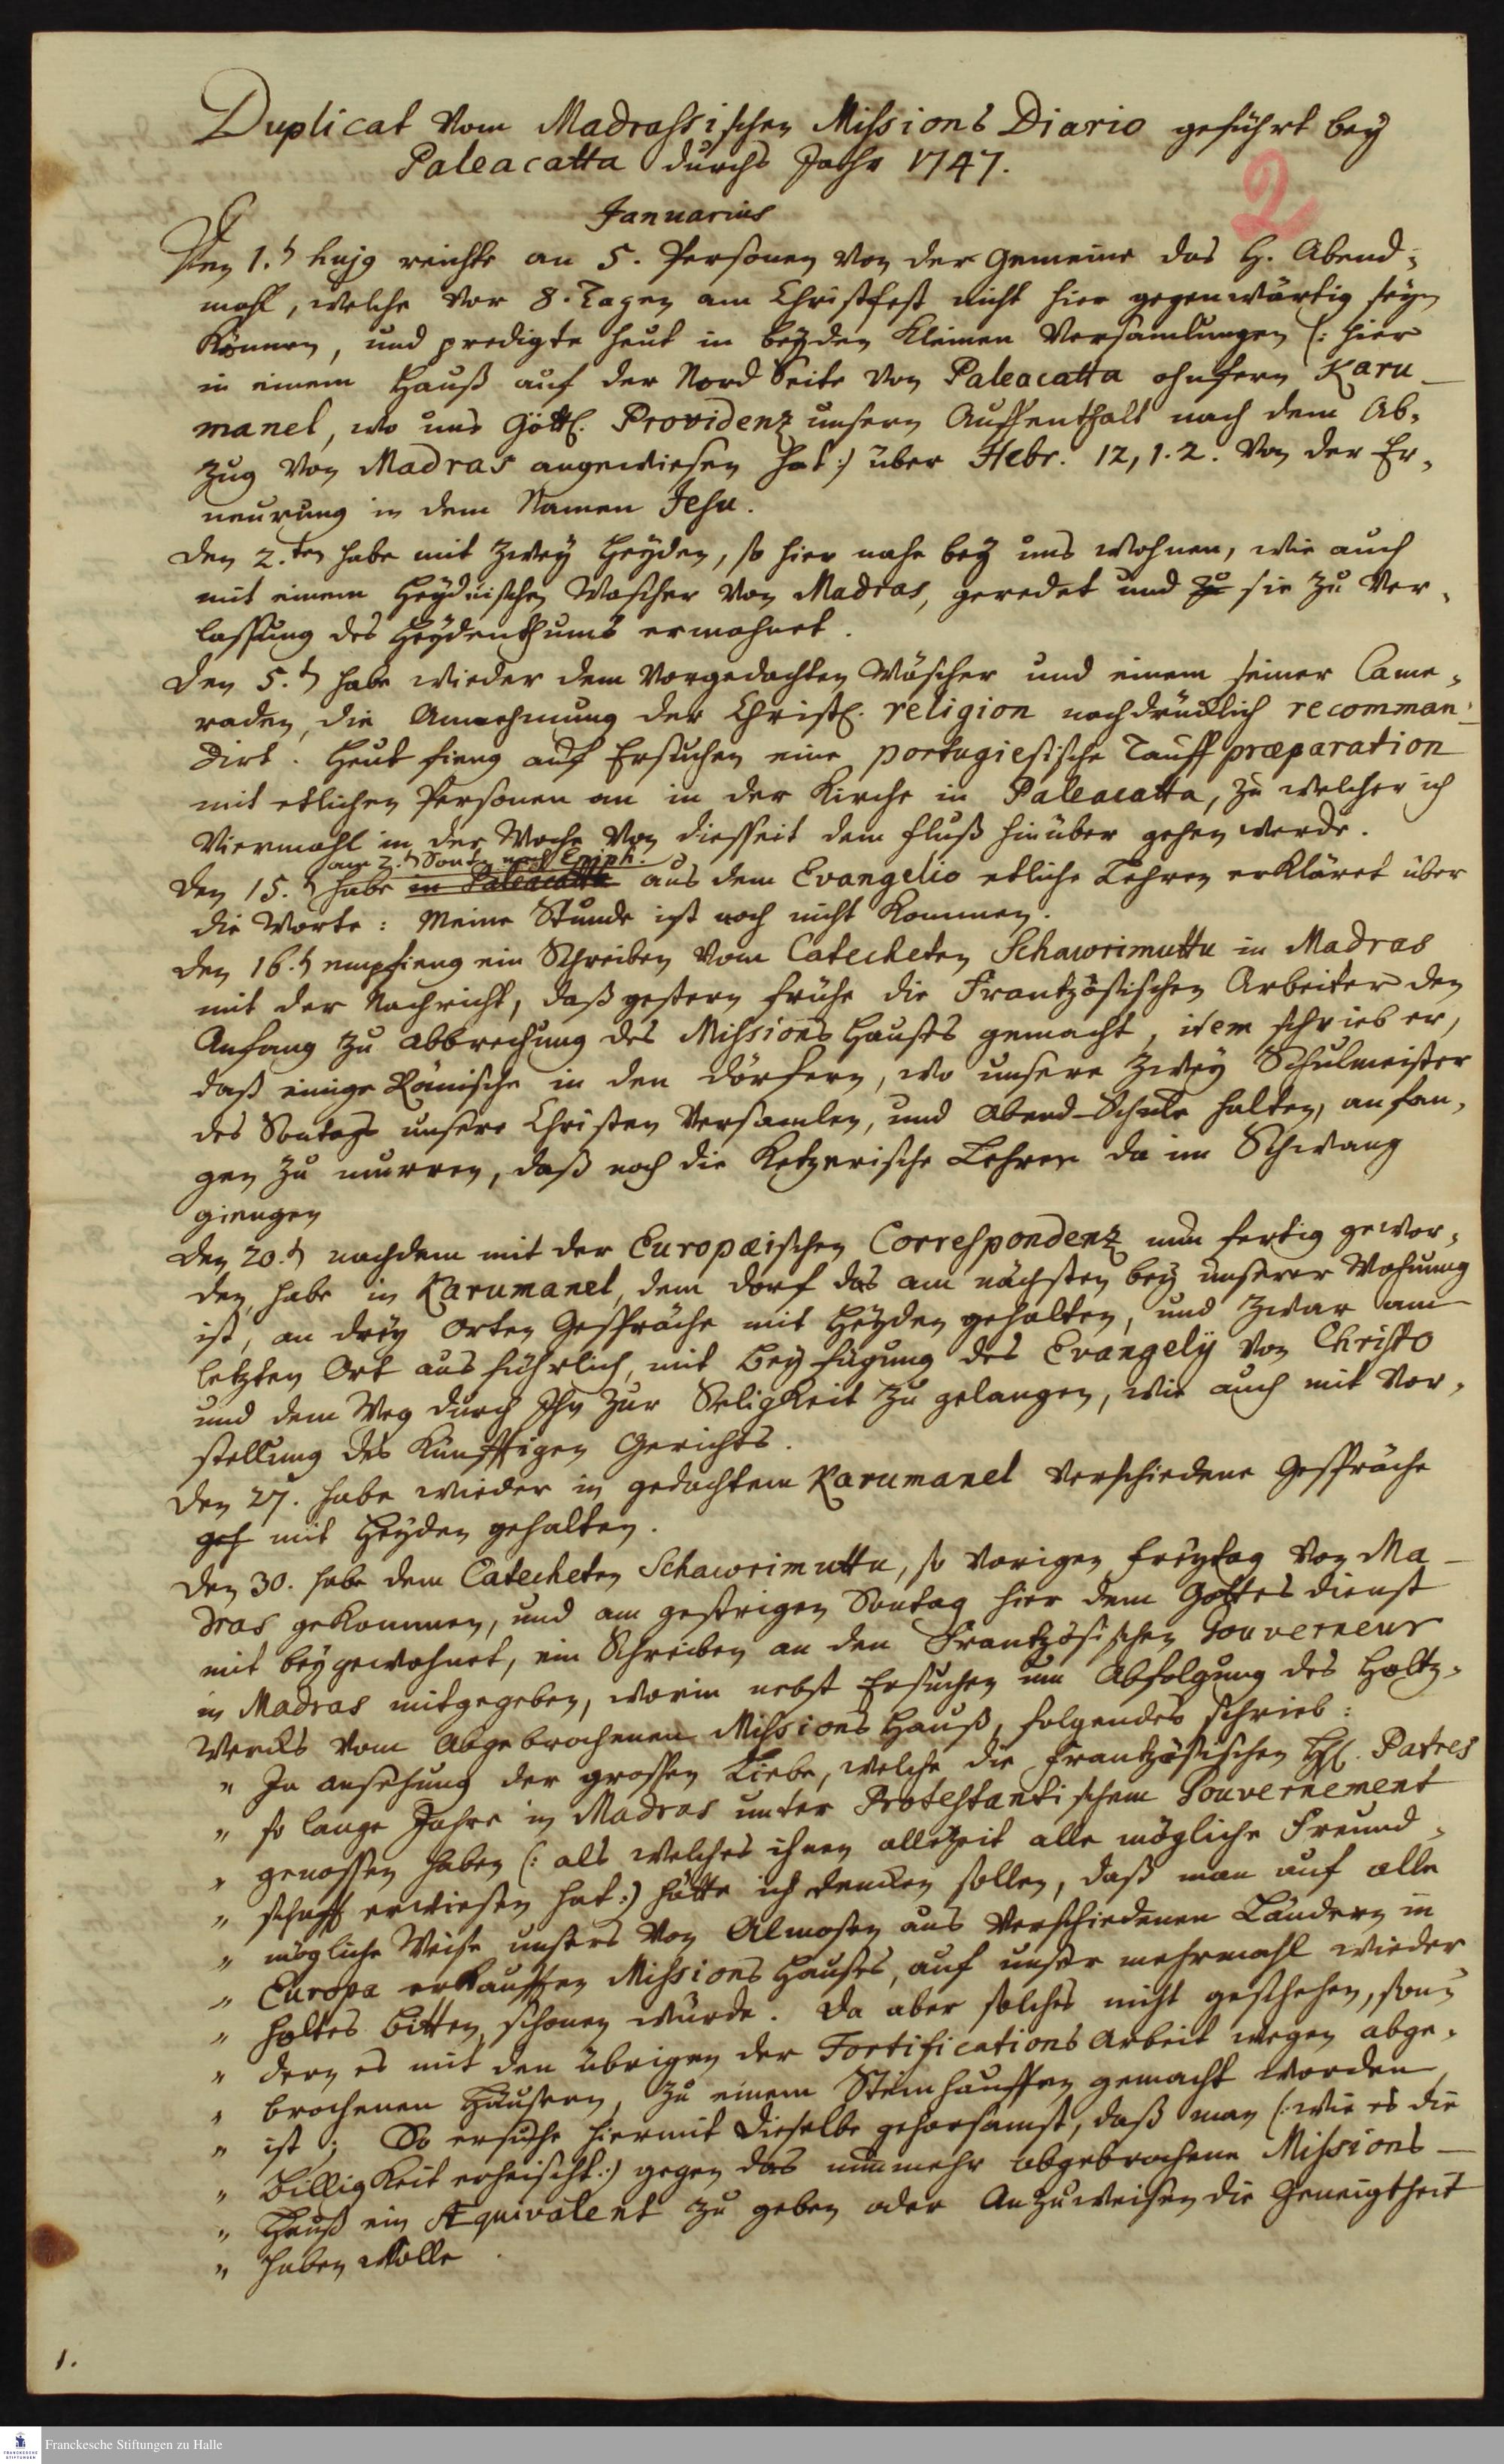 Duplicat vom Madrassischen Missions Diario geführt bey
Paleacatta durchs Jahr 1747.
2
Januarius
Den 1.t hujg reichte an 5. Personen von der Gemeine das H. Abend-
mahl, welche vor 8. Tagen am Christfest nicht hier gegenwärtig seyn
können, und predigte heut in beyden kleinen Versamlungen (: hier
in einem Hauß auf der Nord Seite von Paleacatta ohnfern Karu-
manel, wo uns Göttl. Providenz unsern Auffenthalt nach dem Ab-
zug von Madras angewiesen hat :) über Hebr. 12, 1. 2. von der Er-
neurung in dem Namen Jesu.
den 2.ten habe mit zwey Heyden, so hier nahe bey uns wohnen, wie auch
mit einem Heydnischen Wascher von Madras, geredet und zu sie zu Ver-
lassung des Heydenthums ermahnet.
den 5.t habe wieder dem vorgedachten Wäscher und einem seiner Came-
raden, die Annehmung der Christl. religion nachdrücklich recomman-
dirt. Heut fieng auf Ersuchen eine portugiesische Tauff præparation
mit etlichen Personen an in der Kirche in Paleacatta, zu welcher ich
viermahl in der Woche von diesseit dem Fluß hinüber gehen werde.
am 2.t Sont. nach Epiph.
den 15.t habe in Paleacatta aus dem Evangelio etliche Lehren erkläret über
die Worte: Meine Stunde ist noch nicht kommen.
den 16.t empfieng ein Schreiben vom Catecheten Schawrimuttu in Madras
mit der Nachricht, daß gestern frühe die Frantzösischen Arbeiter den
Anfang zu abbrechung des Missions Hauses gemacht, item schrieb er,
daß einige Römische in den Dörfern, wo unsere zwey Schulmeister
des Sontags unsere Christen versamlen, und Abend-Schule halten, anfan-
gen zu murren, daß noch die Ketzerische Lehren da im Schwang
giengen
den 20.t nachdem mit der Europæischen Correspondenz nun fertig gewor-
den, habe in Karumanel, dem Dorf das am nächsten bey unserer Wohnung
ist, an drey Orten Gespräche mit Heyden gehalten, und zwar am
letzten Ort ausführlich, mit Beyfügung des Evangelij von Christo
und dem Weg durch Ihn zur Seligkeit zu gelangen, wie auch mit Vor-
stellung des künfftigen Gerichts.
den 27. habe wieder in gedachtem Karumanel verschiedene Gespräche
geh mit Heyden gehalten.
den 30. habe dem Catecheten Schawrimuttu, so vorigen Freytag von Ma-
dras gekommen, und am gestrigen Sontag hier dem Gottesdienst
mit beygewohnet, ein Schreiben an den Frantzösischen Gouverneur
in Madras mitgegeben, worin nebst Ersuchen um Abfolgung des Holtz-
wercks vom abgebrochenen Missions Hauß, folgendes schrieb:
" In ansehung der grossen Liebe, welche die Frantzösischen HE. Patres
" so lange Jahre in Madras unter Protestantischem Gouvernement
" genossen haben (: als welches ihnen allezeit alle mögliche Freund-
" schafft erwiesen hat :) hätte ich dencken sollen, daß man auf alle
" mögliche Weise unsers von Almosen aus verschiedenen Ländern in
" Europa erkaufften Missions Hauses, auf unser mehrmahl wieder
" holtes bitten, schonen würde. Da aber solches nicht geschehen, son-
" dern es mit den übrigen der Fortifications Arbeit wegen abge-
" brochenen Häusern, zu einem Steinhauffen gemacht worden
" ist; So ersuche hiermit Dieselbe gehorsamst, daß man (: wie es die
" Billigkeit erheischt :) gegen das nunmehr abgebrochene Missions-
" Hauß ein Æquivalent zu geben oder anzuweisen die Geneigtheit
" haben wolle.
1.
FRANCKESCHE STIFTUNGEN
Franckesche Stiftungen zu Halle